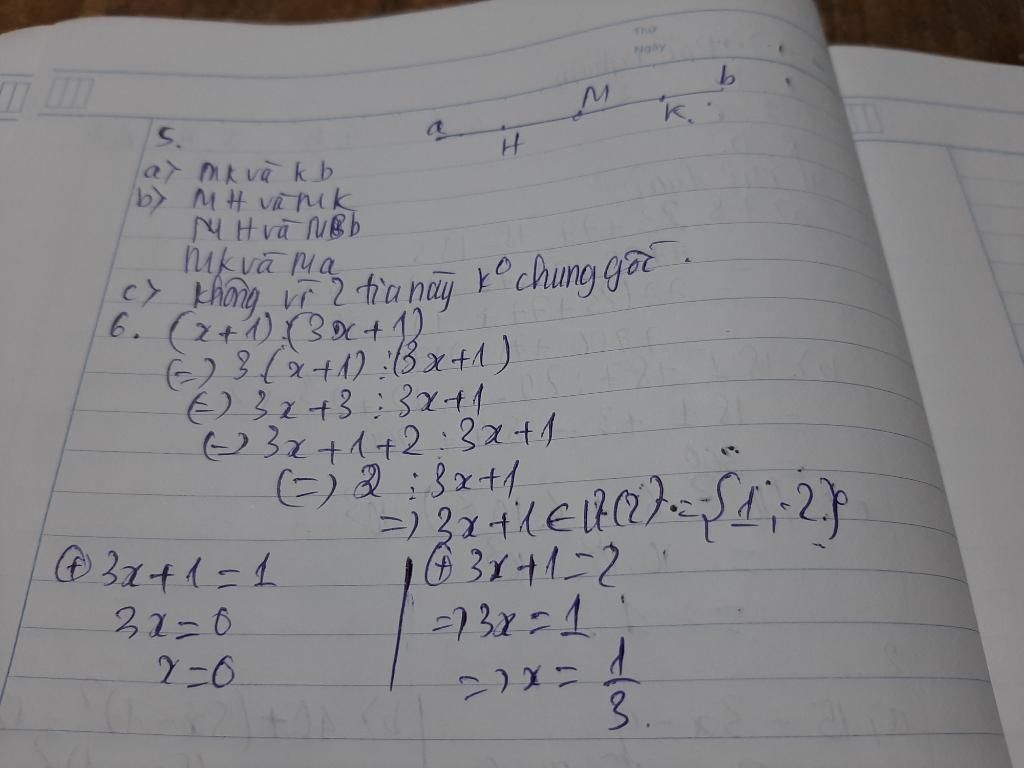 Thứ
Ngày
5.
a H M K. b
a> MK và kb
b> MH và MK
MH và Mb
MK và Ma
c> không vì 2 tia này k° chung gốc.
6. (x+1)⋮(3x+1)
(=) 3.(x+1) ⋮(3x+1)
(=) 3x+3 ⋮ 3x+1
(=) 3x+1+2 ⋮ 3x+1
(=) 2 ⋮ 3x+1
=) 3x+1 ∈ Ư(2) = {1; 2}
⊕ 3x+1=1
3x=0
x=0
⊕ 3x+1=2
=) 3x=1
=) x= 1/3.